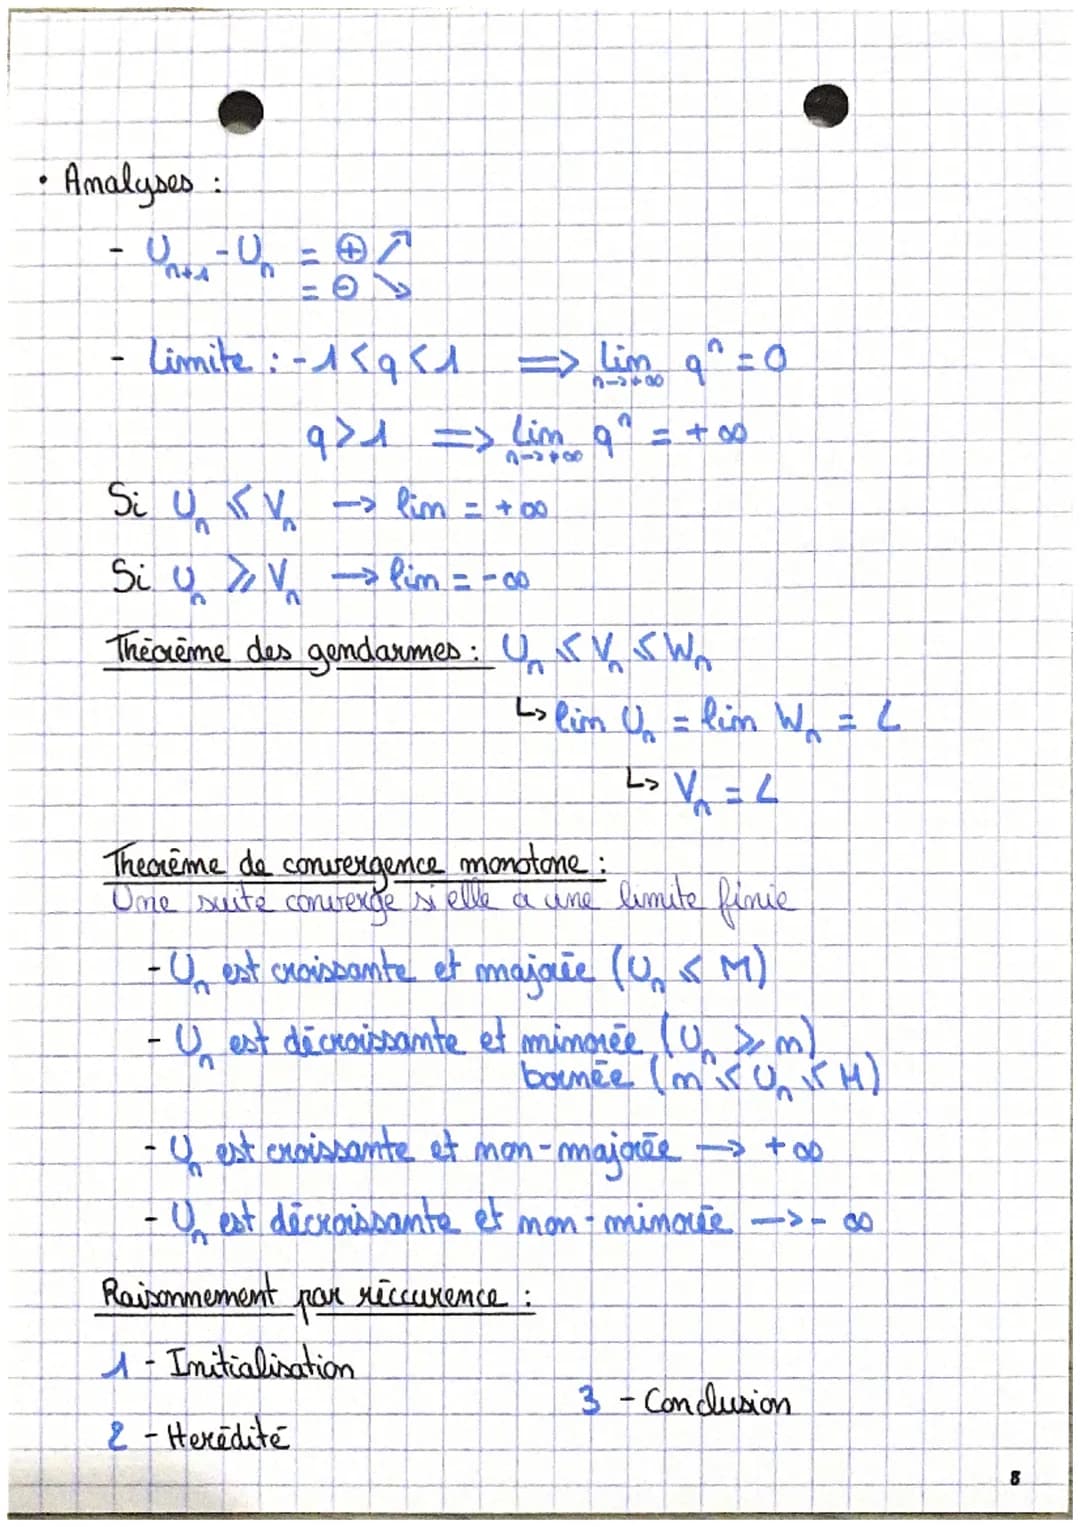 • Analyses :
- Uₙ₊₁ - Uₙ = ⊕ ↗
= ⊖ ↘
- Limite : -1 < q < 1 ⟹ lim qⁿ = 0
n→+∞
q > 1 ⟹ lim qⁿ = +∞
n→+∞
Si Uₙ ⩽ Vₙ → lim = +∞
Si Uₙ ⩾ Vₙ → lim = -∞
Théorème des gendarmes : Uₙ ⩽ Vₙ ⩽ Wₙ
↳ lim Uₙ = lim Wₙ = L
↳ Vₙ = L
Theorème de convergence monotone :
Une suite converge si elle a une limite finie
- Uₙ est croissante et majorée (Uₙ ⩽ M)
- Uₙ est décroissante et minorée (Uₙ ⩾ m)
bornée (m ⩽ Uₙ ⩽ M)
- Uₙ est croissante et non-majorée → +∞
- Uₙ est décroissante et non-minorée → -∞
Raisonnement par réccurence :
1 - Initialisation
3 - Conclusion
2 - Herédité
8